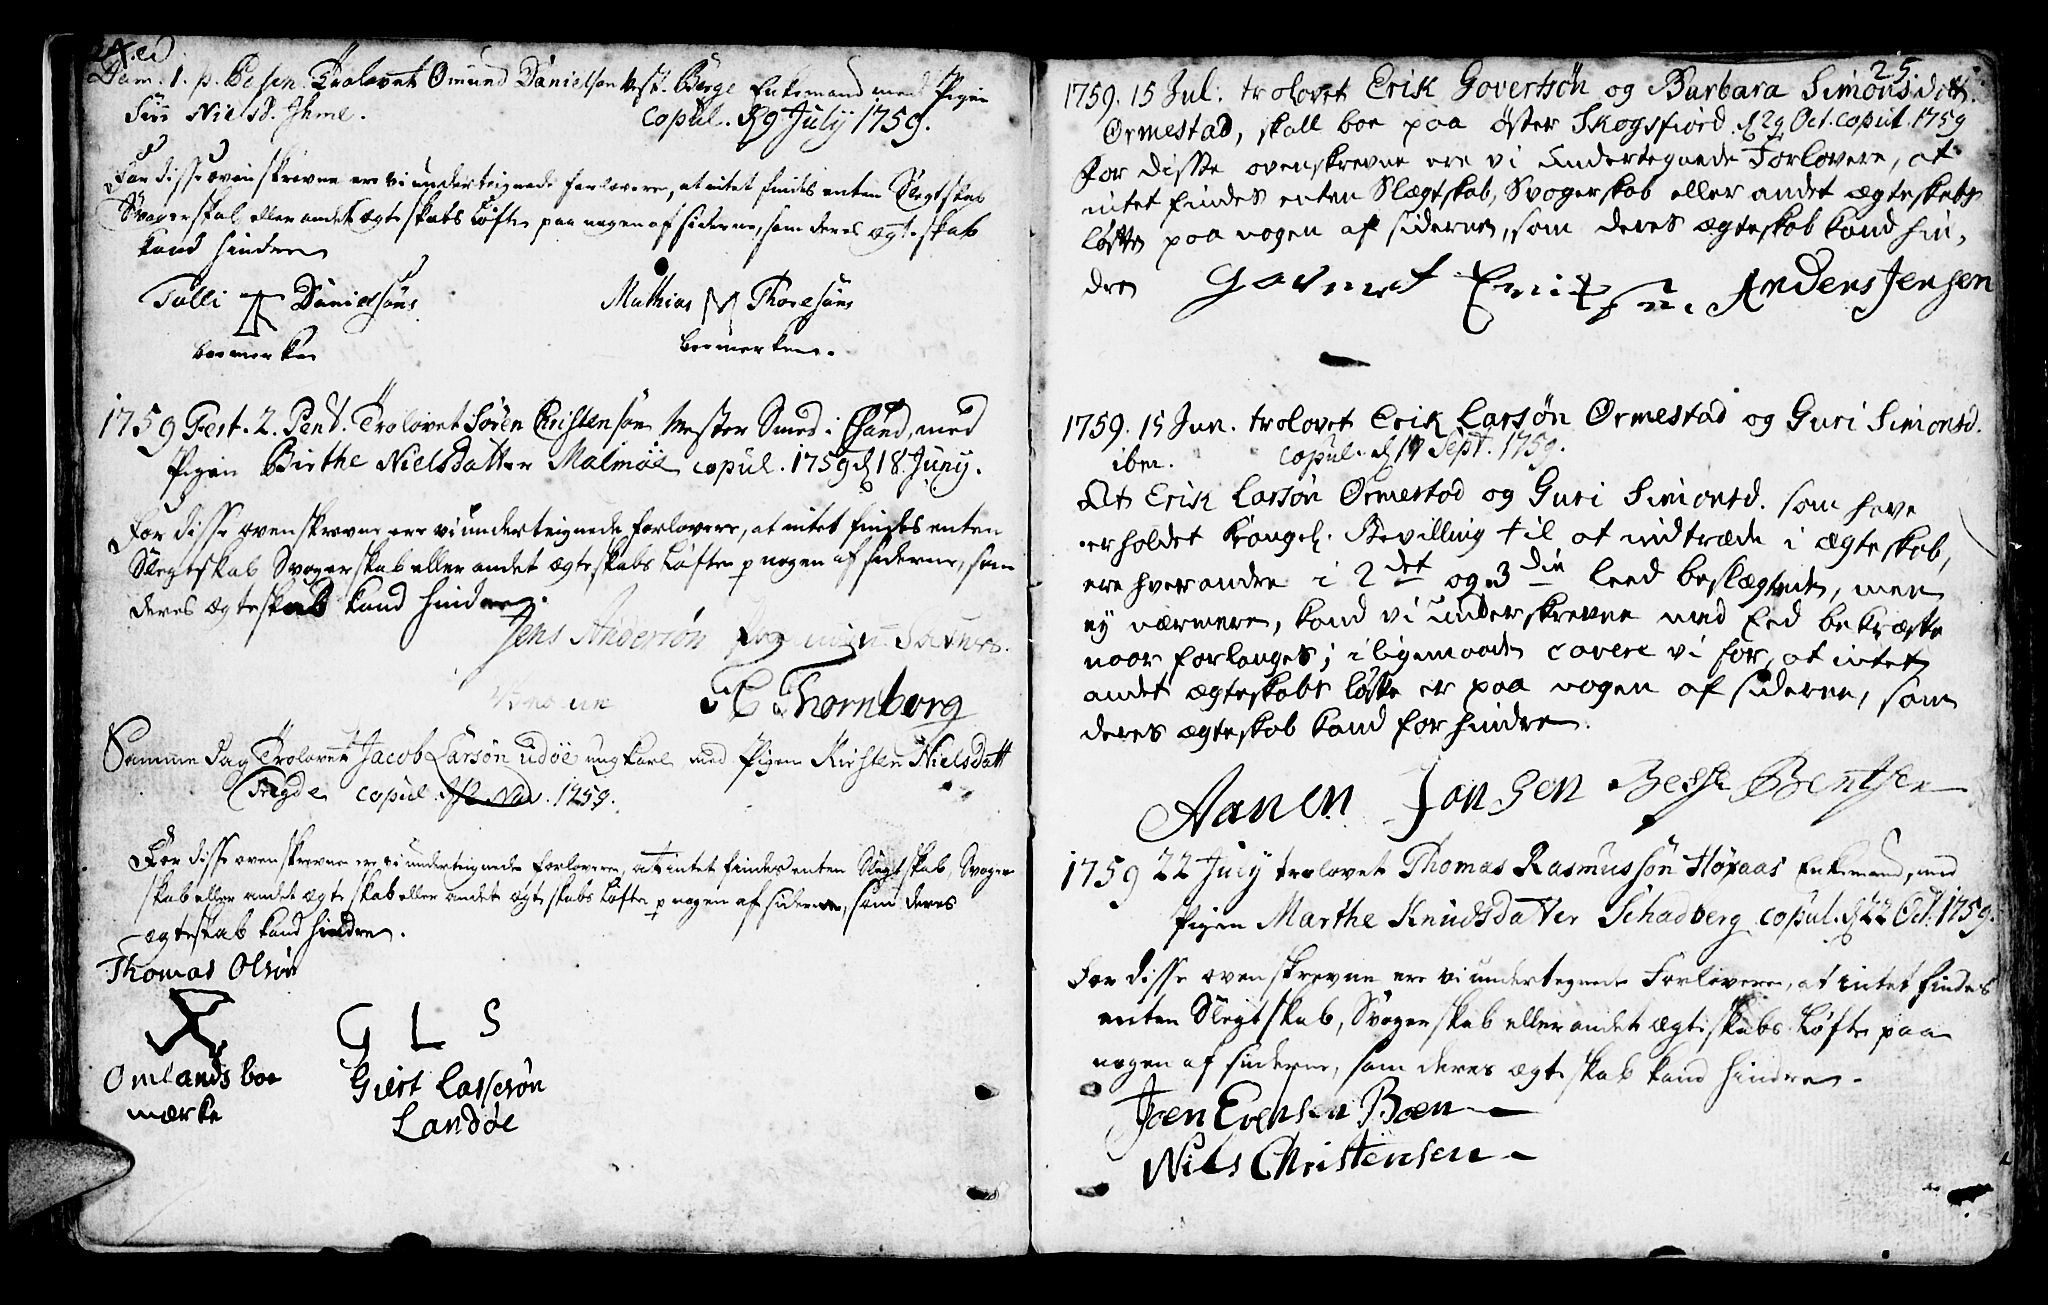 Dom. 1. p. Trolovet Omund Danielsøn Berge Enkemand med Pigen
Siri Nielsd. Ihme. Copul. d 9 Julij 1759.
For disse ovenskrevne ere vi underteignede forlovere, at intet findes enten Slegtskab
Svogerskab eller andet Ægteskabs Løfte paa nogen af siderne, som deres Ægteskab
kand hindre
Tolli Danielsøns Mathias Thoresøns
boemerke boemerke.
1759 Fest. 2. Pent. Trolovet Søren Christensøn Mester Smed i Chsand, med
Pigen Birthe Nielsdatter Malmøe copul. 1759 d 18. Junij.
For disse ovenskrevne ere vi underteignede forlovere, at intet findes enten
Slegtskab Svogerskab eller andet ægteskabs Løfte p nogen af siderne, som
deres Ægteskab kand hindre.
Jens Andersøn
Thornborg
Samme Dag Trolovet Jacob Larsøn Udøe ung karl med Pigen Kirsten Nielsdatt
Tregde copul. Nov. 1759.
For disse ovenskrevne ere vi underteignede forlovere, at intet findes enten Slegtskab, Svoger
skab eller andet ægteskab eller andet ægteskabs Løfte p nogen af siderne, som deres
ægteskab kand hindre.
Thomas Olsøn
G L S
Omlands boe Giert Lassesøn
mærke Landøe
25.
1759. 15 Jul. trolovet Erik Govertsøn og Barbara Simonsdott.
Ormestad, skall boe paa øster Skogsfiord. d 29 Oct. copul. 1759
For disse ovenskrevne ere vi undertegnede Forlovere, at
intet findes enten Slægtskab, Svogerskab eller andet ægteskabs
løfte paa nogen af siderne, som deres ægteskab kand hin,
dre Govert Erikssn. Anders Jensen
1759. 15 Jun. trolovet Erik Larsøn Ormestad og Guri Simonsd.
ibm. copul. d 17 Sept. 1759.
At Erik Larsøn Ormestad og Guri Simonsd. som have
erholdet kongel. Bevilling til at indtræde i ægteskab,
ere hverandre i 2det og 3die leed beslægtede, men
ey nærmere, kand vi underskrevne med Eed bekræfte
naar forlanges; i ligemaade cavere vi for, at intet
andet ægteskabs løfte er paa nogen af siderne, som
deres ægteskab kand forhindre.
Aanen Jonsen Besse Bentsen
1759 22 July trolovet Thomas Rasmussøn Høyaas Enkemand, med
Pigen Marthe Knudsdatter Schadberg copul. d 22 Oct. 1759.
For disse ovenskrevne ere vi undertegnede Forlovere, at intet findes
enten Slegtskab, Svogerskab eller andet ægteskabs Løfte paa
nogen af siderne, som deres ægteskab kand hindre.
Joen Evensen Boen
Niels Christensen